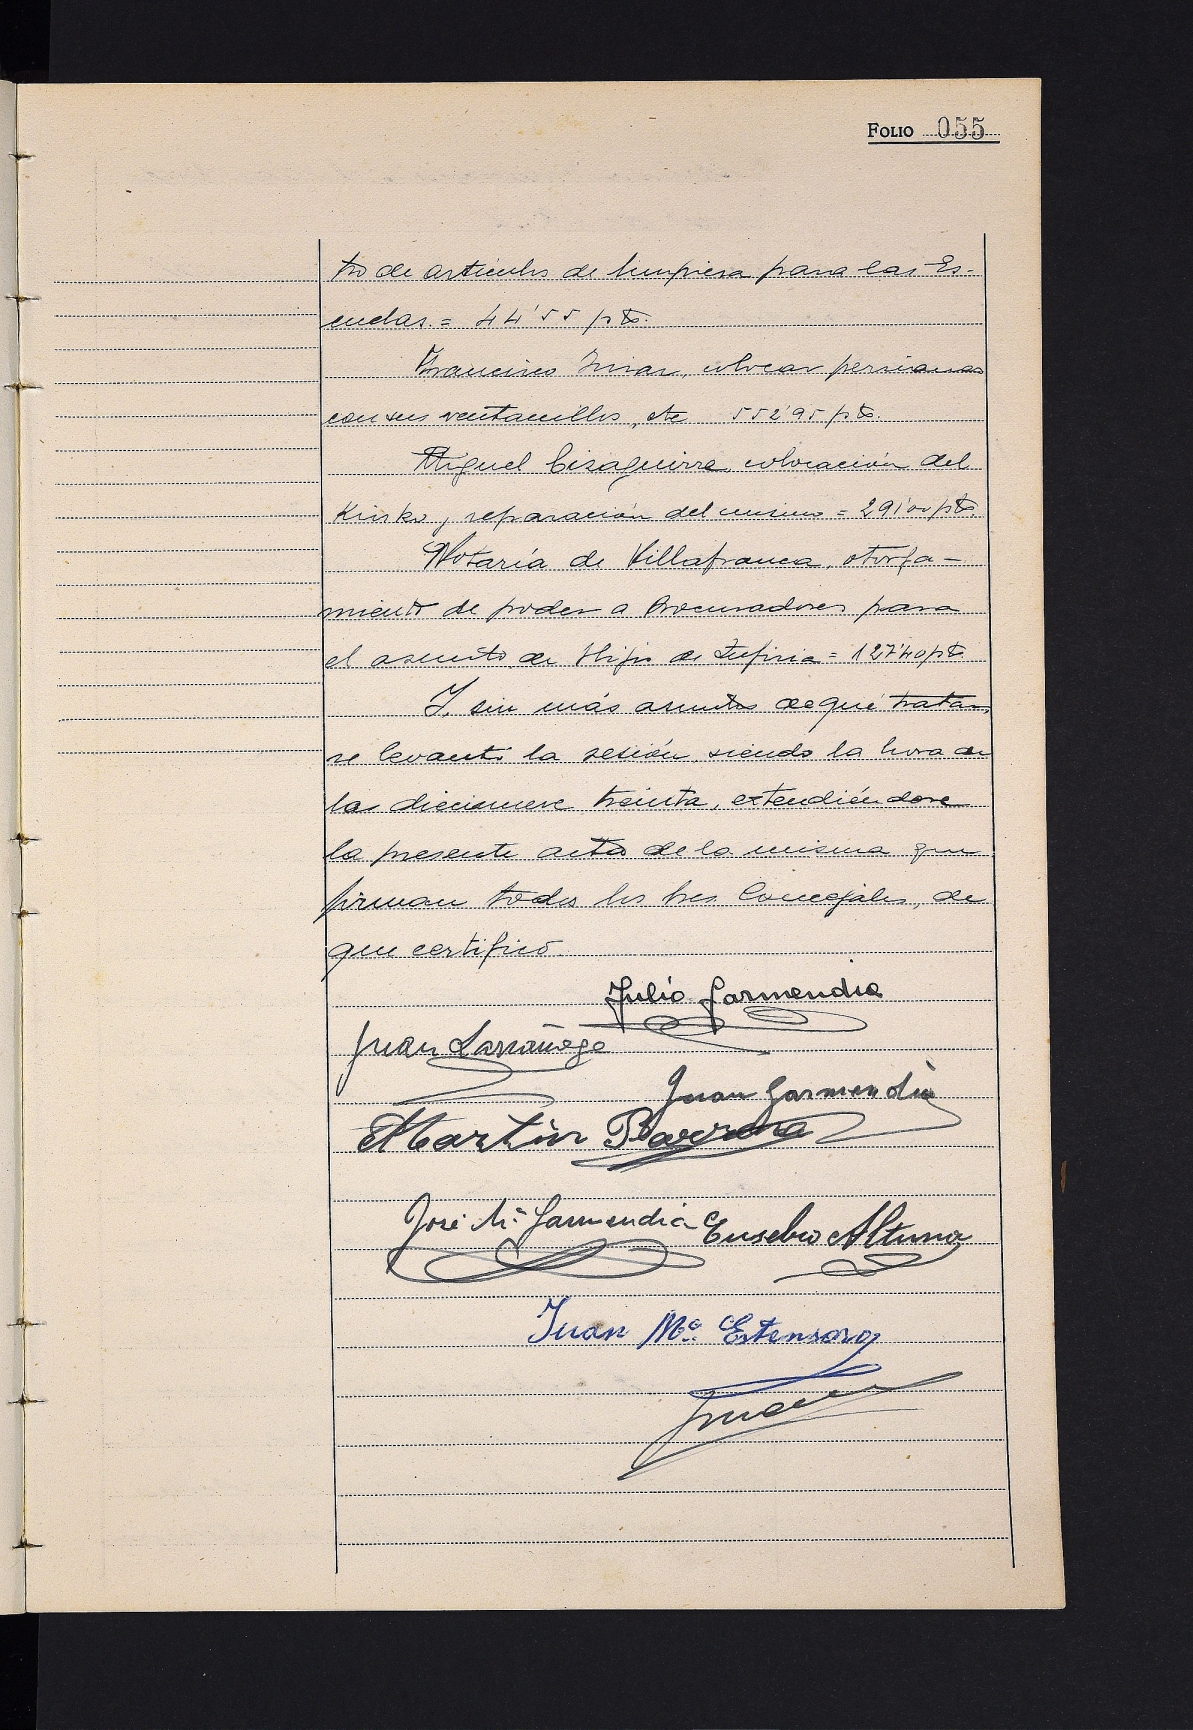 FOLIO 055
tro de artículos de limpieza para las Es-
cuelas = 44'55 pts.
Francisco colocar persianas
con sus ventanillos, etc 552'95 pts.
Miguel Eizaguirre, colocación del
Kiosko, reparación del mismo = pts.
Notaría de Villafranca, otorga-
miento de poder a Procuradores para
el asunto de Hijos de = 127'40 pts
Y, sin más asuntos de qué tratar,
se levantó la sesión, siendo la hora de
las diecinueve treinta, extendiéndose
la presente acta de la misma que
firman todos los Sres. Concejales, de
que certifico.
Julio Garmendia
Juan Larrañaga
Juan Garmendia
Martin
José Mª Garmendia Eusebio Altuna
Juan Mª Estensoro